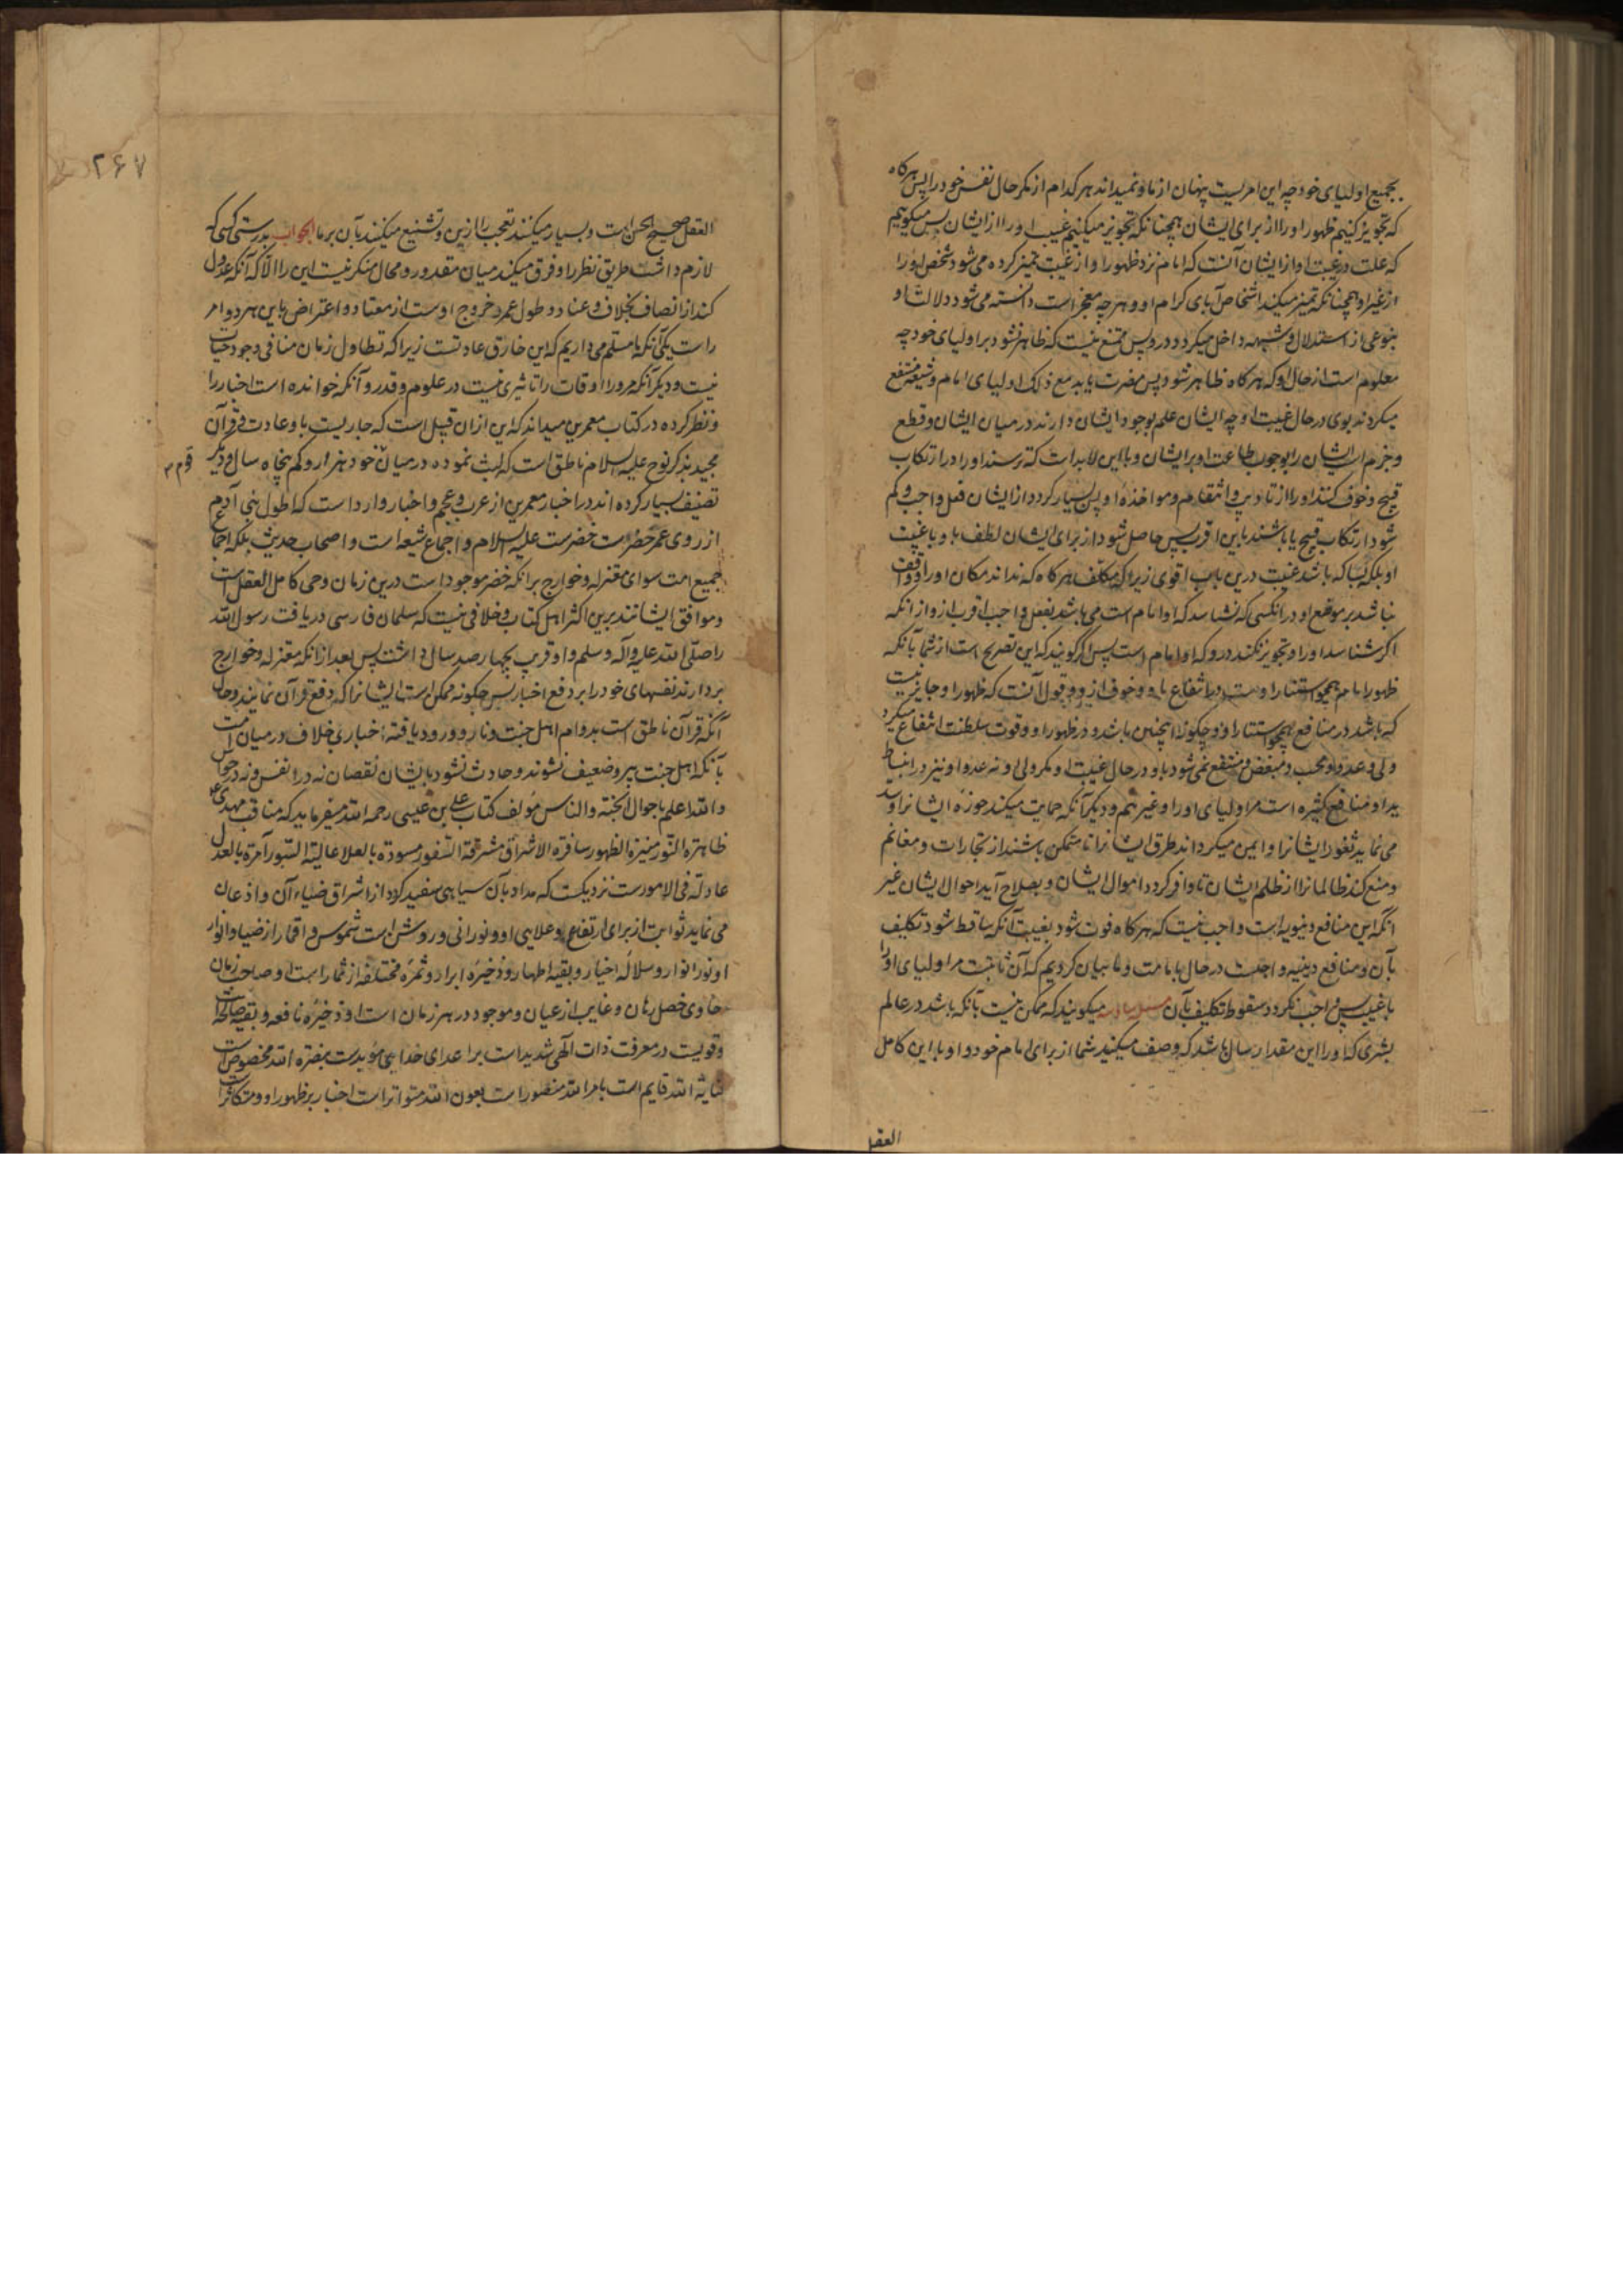 بجمیع اولیای خود چه این امریست پنهان از ما و نمیداند هر کدام از مکر حال نفس خود را پس هرگاه
که تجویز کنیم ظهور او را از برای ایشان همچنانکه تجویز میکنیم غیبت او را از ایشان پس میگوییم
که علت در غیبت او از ایشان آنست که امام نزد ظهور او از غیبت متمیز کرده می شود شخص او را
از غیر او همچنانکه تمیز میکند اشخاص آبای کرام او و هر چه معجز است دانسته می شود دلالت او
بنوعی از استدلال و شبهه داخل میگردد در و پس ممتنع نیست که ظاهر نشود بر اولیای خود چه
معلوم است از حال او که هرگاه ظاهر شود پس مضرت یابد مع ذلک اولیای امام و شیعه منتفع
میگردند بوی در حال غیبت او چه ایشان علم بوجود ایشان دارند در میان ایشان و قطع
و جزم است ایشان را بوجوب طاعت او بر ایشان و با این لابد است که ترسند او را در ارتکاب
قبیح و خوف کنند او را از تادیب و انتقام و مواخذه او پس بسیار گردد از ایشان فعل واجب و کم
شود ارتکاب قبیح یا باشند باین اقرب پس حاصل شود از برای ایشان لطف باو با غیبت
او بلکه بسا که باشد غیبت درین باب اقوی زیرا که مکلف هرگاه که نداند مکان او را و واقف
نباشد بر موضع او در آنکسی که نشناسد که او امام است می باشد بفعل واجب اقرب ازو از آنکه
اگر شناسد او را و تجویز نکند درو که او امام است پس اگر گویند که این تصریح است از شما بآنکه
ظهور امام همچو استتار اوست در انتفاع باو و خوف ازو و قول آنست که ظهور او جایز نیست
که باشد در منافع همچو استتار او و چگونه اینچنین باشد و در ظهور او و قوت سلطنت انتفاع میگیرد
ولی و عدو و محب و مبغض و منتفع نمی شود باو در حال غیبت او مگر ولی او نه عدو او نیز در انبساط
ید او منافع کثیره است مر اولیای او را و غیرهم و دیگر آنکه حمایت میکند حوزه ایشانرا و سد
می نماید ثغور ایشانرا و ایمن میگرداند طرق ایشانرا تا متمکن باشند از تجارات و مغانم
و منع کند ظالمانرا از ظلم ایشان تا وافر گردد اموال ایشان و بصلاح آید احوال ایشان غیر
آنکه این منافع دنیویه است واجب نیست که هرگاه فوت شود بغیبت آنکه ساقط شود تکلیف
بآن و منافع دینیه واجبست در حال بامامت و ما بیان کردیم که آن ثابتست مر اولیای او را
با غیبت پس واجب نگردد سقوط تکلیف بآن مسئله سادسه میگویند که ممکن نیست بآنکه باشد در عالم
بشری که او را این مقدار سال باشد که وصف میکنید شما از برای امام خود و او با این کامل
العقل
۲۶۷
العقل صحیح الحس است و بسیار میکنند تعجب را ازین و تشنیع میکنند بآن بر ما الجواب بدرستی کسی که
لازم داشت طریق نظر را و فرق میکند میان مقدور و محال منکر نیست این را الا که آنکه عدول
کند از انصاف بخلاف و عناد و طول عمر و خروج اوست از معتاد و اعتراض باین هر دو امر
راست یکی آنکه ما مسلم می داریم که این خارق عادتست زیرا که تطاول زمان منافی وجود حیات
نیست و دیگر آنکه مرور اوقات را تاثیری نیست در علوم و قدر و آنکه خوانده است اخبار را
و نظر کرده در کتاب معمرین میداند که این از آن قبیل است که جاریست باو عادت و قرآن
مجید بذکر نوح علیه السلام ناطق است که لبث نموده در میان خود هزار و کم پنجاه سال و دیگر
قوم
تصنیف بسیار کرده اند در اخبار معمرین از عرب و عجم و اخبار وارد است که اطول بنی آدم
از روی عمر خضر است خضرست علیه السلام و اجماع شیعه است و اصحاب حدیث بلکه اجماع
جمیع امت سوای معتزله و خوارج بر آنکه خضر موجود است درین زمان و حی کامل العقل است
و موافق ایشانند برین اکثر اهل کتاب و خلافی نیست که سلمان فارسی دریافت رسول الله
را صلی الله علیه و آله و سلم و او قریب بچهار صد سال داشت پس بعد از آنکه معتزله و خوارج
بردارند نفسهای خود را بر دفع اخبار پس چگونه ممکن است ایشانرا که دفع قرآن نمایند و حال
آنکه قرآن ناطق است بدوام اهل جنت و نار و ورود یافته اخباری خلاف در میان امت
بآنکه اهل جنت پیر و ضعیف نشوند و حادث نشود بایشان نقصان نه در انفس و نه در حواس
و الله اعلم باحوال الجنة و الناس مؤلف کتاب علی بن عیسی رحمه الله میفرماید که مناقب مهدی
ظاهرة النور منیرة الظهور سافرة الاشراق مشرقة السفور مسودة بالعلا عالیة السور آمرة بالعدل
عادلة فی الامورست نزدیکست که مداد بآن سیاهی سفید گردد از اشراق ضیاء آن و اذعان
می نماید ثوابت از برای ارتفاع و علایی او و نورانی و روشن است شموس و اقمار از ضیا و انوار
او نور انوار و سلاله اخیار و بقیه اطهار و ذخیره ابرار و ثمره مختلفه از ثمار است او صاحب زمان
حاوی خصل رهان و غایب از عیان و موجود در هر زمان است او ذخیره نافعه و بقیه صالحه
و قویست در معرفت ذات الهی شدید است بر اعدای خدایی مؤیدست بنصرة الله مخصوص است
بعنایة الله قایم است بامر الله منصور است بعون الله متواتر است اخبار بر ظهور او و متکاثر است